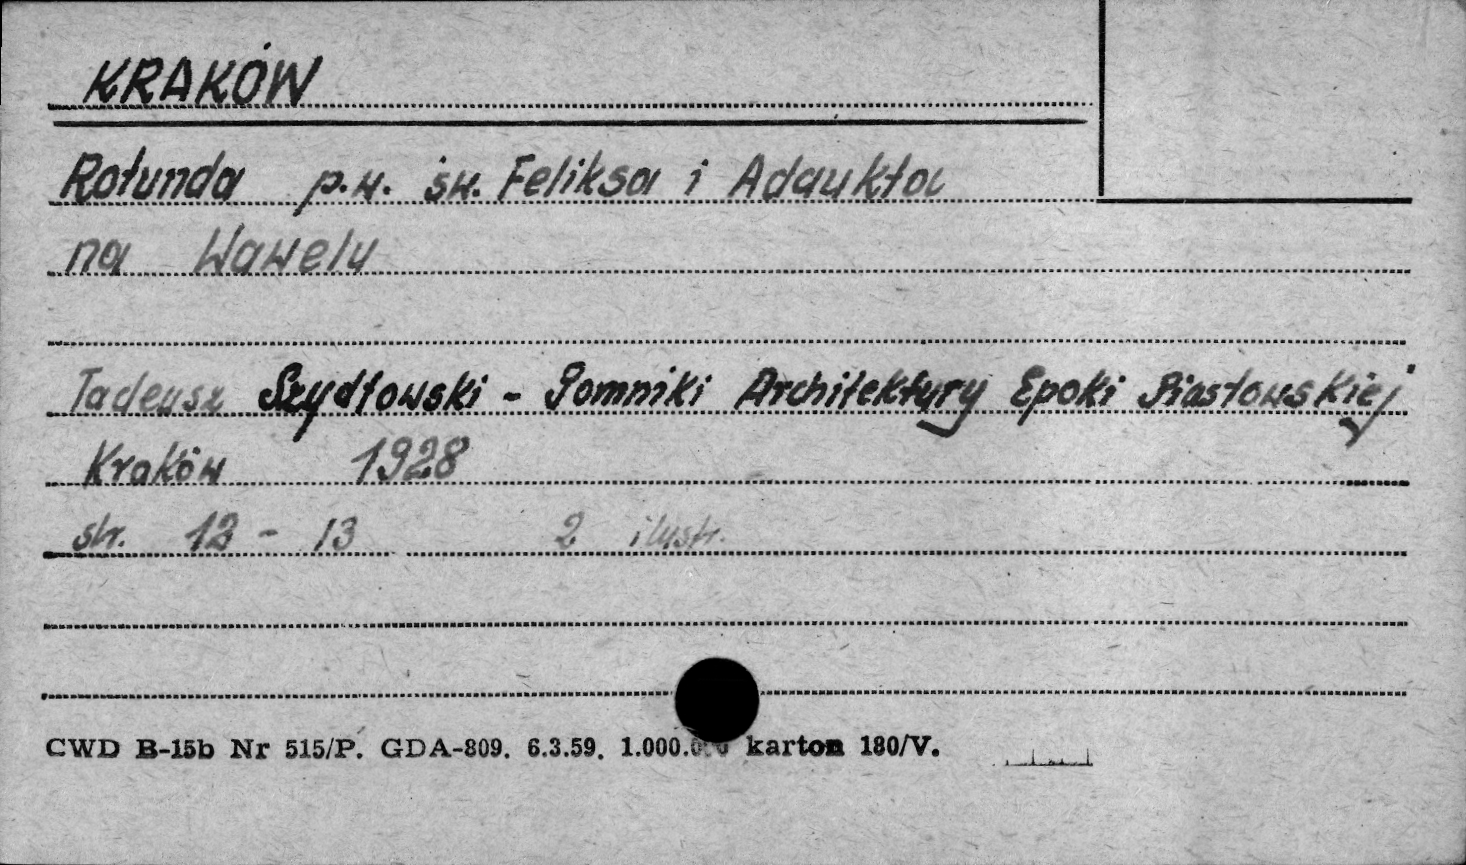 KRAKÓW
Rotunda p.w. św. Feliksa i Adaukta
na Wawelu
Tadeusz Szydłowski - Pomniki Architektury Epoki Piastowskiej
Kraków 1928
str. 12 - 13 2 ilustr.
CWD B-15b Nr 515/P. GDA-809. 6.3.59. 1.000.000 karton 180/V.